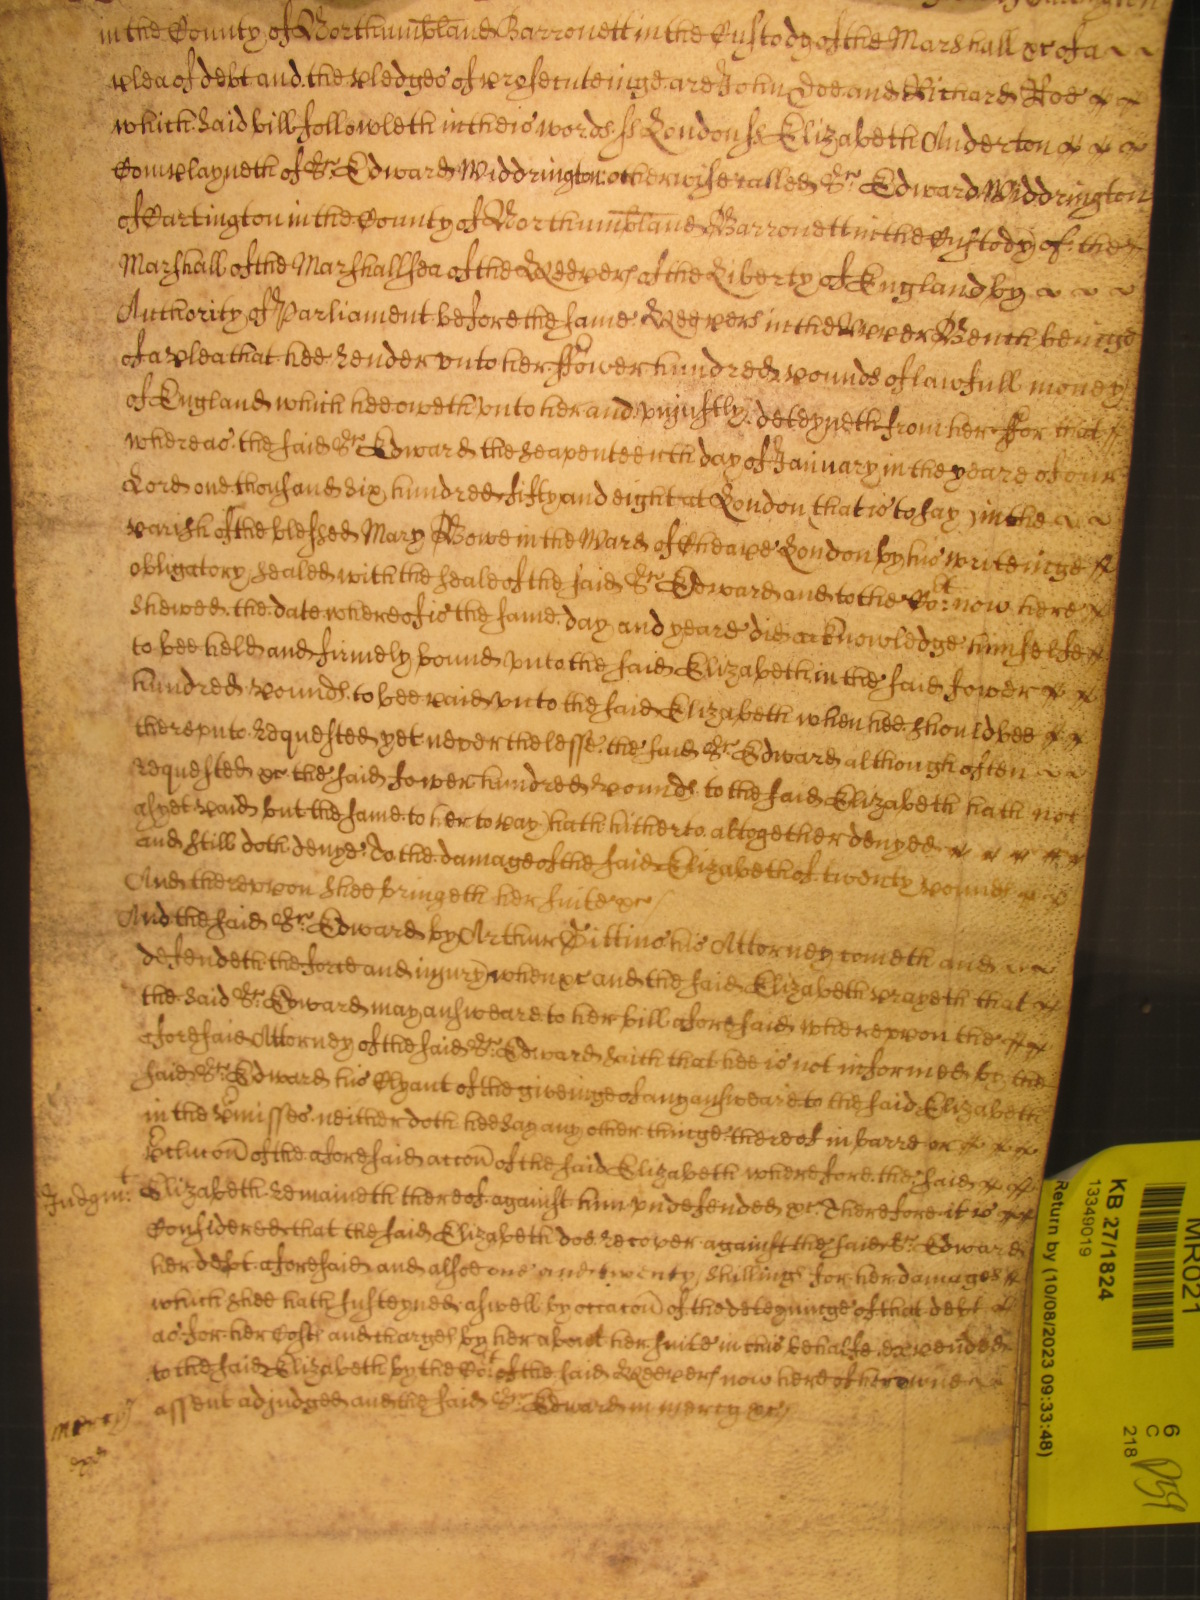 in the County of Northumbland Barronett in the Custody of the Marshall &c of a
plea of debt and the pledges of prosecuteinge are John Doe and Richard Roe
which said bill followeth in theis words ss London ss Elizabeth Anderton
Complayneth of Sr Edward Widdrington otherwise called Sr Edward Widdrington
of Cartington in the County of Northumbland Barronett in the Custody of the
Marshall of the Marshallsea of the Keepers of the Liberty of England by
Authority of Parliament before the same Keepers in the Upper Bench beinge
of a plea that hee render unto her ffower hundred pounds of lawfull money
of England which hee oweth unto her and unjustly deteyneth from her ffor that
whereas the said Sr Edward the seaventeenth day of January in the yeare of our
Lord one thousand six hundred fifty and eight at London that is to say in the
parish of the blessed Mary Bowe in the Ward of Cheape London by his writeinge
obligatory sealed with the seale of the said Sr Edward and to the Cort now here
shewed the date whereof is the same day and yeare did acknowledge himselfe
to bee held and firmely bound unto the said Elizabeth in the said fower
hundred pounds to bee paid unto the said Elizabeth when hee should bee
thereunto requested yet neverthelesse the said Sr Edward although often
requested &c the said fower hundred pounds to the said Elizabeth hath not
as yet paid but the same to her to pay hath hitherto altogether denyed
and still doth denye To the damage of the said Elizabeth of twenty pounds
And thereupon shee bringeth her suite &c
And the said Sr Edward by Arthur his Attorney cometh and
defendeth the force and injury when &c and the said Elizabeth prayeth that
the said Sr Edward may answeare to her bill aforesaid whereupon the
aforesaid Attorney of the said Sr Edward saith that hee is not informed by the
said Sr Edward his Clyant of the giveinge of any answeare to the said Elizabeth
in the Pmisses neither doth hee say any other thinge thereof in barre or
Pclucon of the aforesaid accon of the said Elizabeth wherefore the said
Judgmt Elizabeth remaineth thereof against him undefended &c Therefore it is
Considered that the said Elizabeth doe recover against the said Sr Edward
her debt aforesaid and alsoe one and twenty shillings for her damages
which shee hath susteyned aswell by occacon of the deteyninge of that debt
as for her Costs and charges by her about her suite in this behalfe expended
to the said Elizabeth by the Cort of the said Keepers now here of her owne
assent adjudged and the said Sr Edward in mercy &c
mercy
MR021
KB 27/1824
13349019
Return by (10/08/2023 09:33:48)
6
C
218